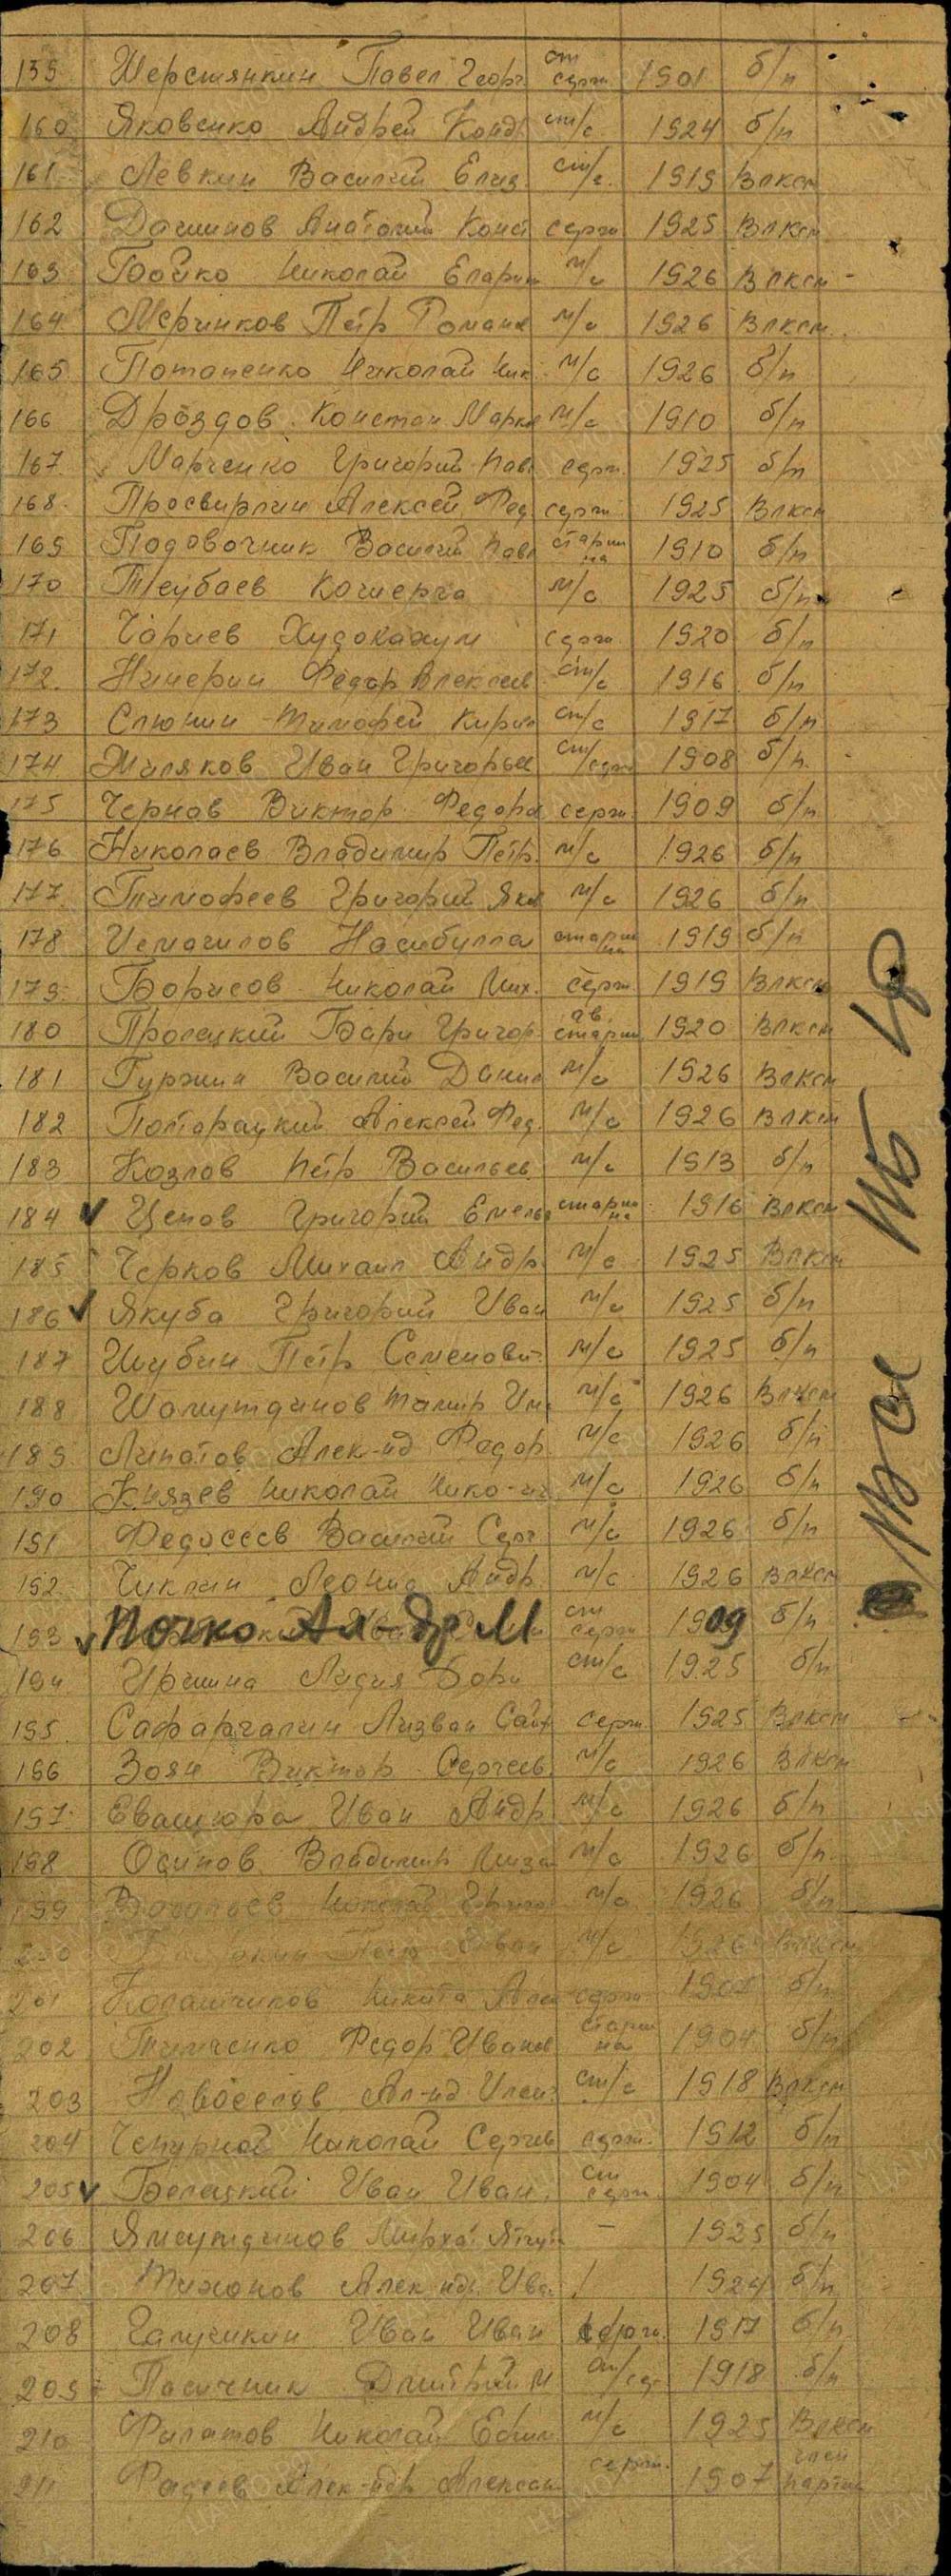 159 Шерстянкин Павел Георг ст серж 1901 б/п
160 Яковенко Андрей Конд ст/с. 1924 б/п
161 Левкин Василий Елиз ст/с. 1919 Влксм
162 Анатолий Конст серж 1925 Влксм
163 Бойко Николай м/с 1926 Влксм
164 Мерчиков Пётр Роман м/с 1926 Влксм
165 Потапенко Николай Ник. м/с 1926 б/п
166 Дроздов Констан. Марко м/с 1910 б/п
167 Марченко Григорий Пав серж. 1925 б/п
168. Просвирлин Алексей Фед серж 1925 Влксм
169 Подовочник Василий Павл старшина 1910 б/п
170 Теубаев м/с 1925 б/п
171 Чориев серж 1920 б/п
172. Федор Алексеев ст/с 1916 б/п
173 Слюнин Тимофей Кирил ст/с 1917 б/п
174 Жиляков Иван Григорьев ст/серж 1908 б/п.
175 Чернов Виктор Федоро серж. 1909 б/п
176 Николаев Владимир Петр. м/с 1926 б/п
177. Тимофеев Григорий Яков м/с 1926 б/п
178 Исмагилов Насибулла старшина 1919 б/п
179. Борисов Николай Мих. серж. 1919 Влксм
180 Пролецкий Бори Григор гв. старш 1920 Влксм
181 Гуржий Василий Данил м/с 1926 Влксм
182 Полторацкий Алексей Фед. м/с 1926 Влксм
183 Козлов Пётр Васильев м/с 1913 б/п
184 Цепов Григорий Емель старшина 1916 Влксм
185 Черков Михаил Андр м/с 1925 Влксм
186 Якуба Григорий Иван м/с 1925 б/п
187 Шубин Пётр Семенович м/с 1925 б/п
188 м/с 1926 Влксм
189 Липатов Алек-нд Федор м/с 1926 б/п
190 Князев Николай Нико-ич м/с 1926 б/п
191 Федосеев Василий Серг м/с 1926 б/п
192 Чуклин Леонид Андр м/с 1926 Влксм
193 Почко Ал-др М ст серж 1909 б/п
194 Иршина Лидия Бори ст/с 1925 б/п
195. Сафаргалин Лизван Сайф серж. 1925 Влксм
196 Зоян Виктор Сергеев м/с 1926 Влксм
197. Евашгора Иван Андр м/с 1926 б/п
198 Осипов Владимир м/с 1926 б/п.
199 Николай Григо м/с 1926 б/п
200 Иван м/с 1926 Влксм
201 Никита серж б/п
202 Тимченко Федор Иванов старшина 1904 б/п
203 Новоселов Ал-нд ст/с 1918 Влксм
204 Чепурной Николай Сергев серж. 1912 б/п
205 Белецкий Иван Иван. ст серж. 1904 б/п
206 – 1925 б/п
207 Тихонов Алек ндр. Иван / 1924 б/п
208 Галушкин Иван Иван серж. 1917 б/п
209 Пасичник Дмитрий М ст/сер 1918 б/п
210 Филатов Николай Ефим м/с 1925 Влксм
211 Фадеев Алек-ндр Алексан серж. 1907 член партии